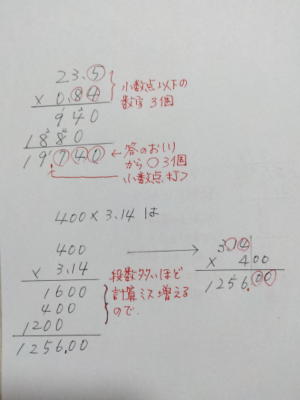 23.5
× 0.84
小数点以下の
数字 3個
940
1880
19.740
←答のおしり
から○3個
小数点打つ
400×3.14は
400
× 3.14
1600
400
1200
1256.00
段数多いほど
計算ミス増える
ので.
3.14
× 400
1256.00